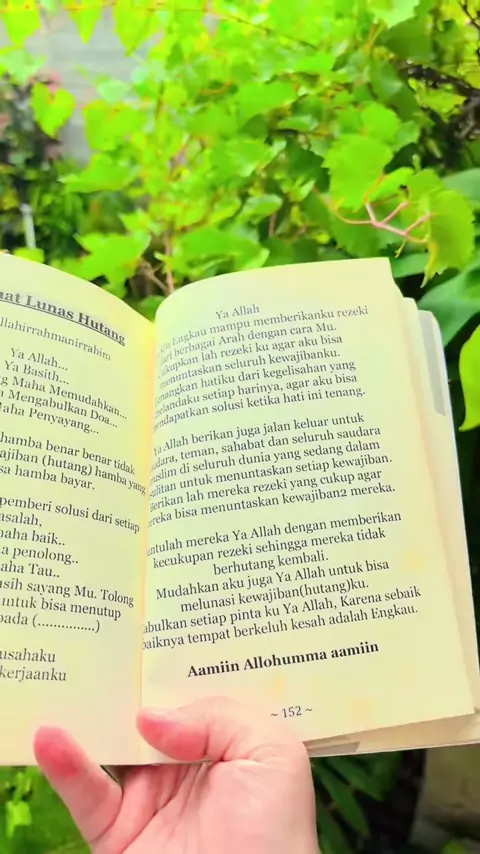 Lunas Hutang
Ya Allah...
Ya Basith...
Maha Memudahkan...
Mengabulkan Doa...
Maha Penyayang...
hamba benar benar tidak
(hutang) hamba yang
hamba bayar.
pemberi solusi dari setiap
baik..
penolong..
Tau..
sayang Mu. Tolong
untuk bisa menutup
(...............)
Ya Allah
Engkau mampu memberikanku rezeki
dari berbagai Arah dengan cara Mu.
cukupkan lah rezeki ku agar aku bisa
menuntaskan seluruh kewajibanku.
hatiku dari kegelisahan yang
melandaku setiap harinya, agar aku bisa
mendapatkan solusi ketika hati ini tenang.
Ya Allah berikan juga jalan keluar untuk
teman, sahabat dan seluruh saudara
di seluruh dunia yang sedang dalam
untuk menuntaskan setiap kewajiban.
Berikan lah mereka rezeki yang cukup agar
mereka bisa menuntaskan kewajiban2 mereka.
mereka Ya Allah dengan memberikan
kecukupan rezeki sehingga mereka tidak
berhutang kembali.
Mudahkan aku juga Ya Allah untuk bisa
melunasi kewajiban(hutang)ku.
setiap pinta ku Ya Allah, Karena sebaik
baiknya tempat berkeluh kesah adalah Engkau.
Aamiin Allohumma aamiin
~ 152 ~